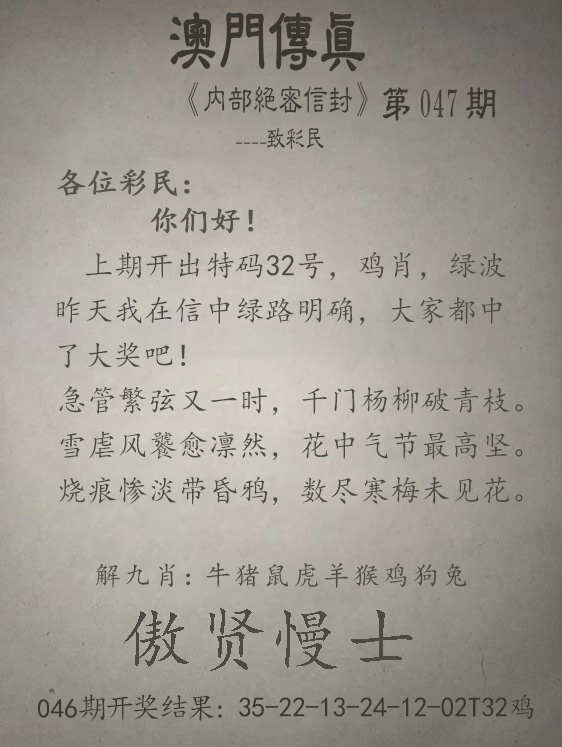 澳門傳眞
《内部絕密信封》第047期
----致彩民
各位彩民：
你们好！
上期开出特码32号，鸡肖，绿波
昨天我在信中绿路明确，大家都中
了大奖吧！
急管繁弦又一时，千门杨柳破青枝。
雪虐风饕愈凛然，花中气节最高坚。
烧痕惨淡带昏鸦，数尽寒梅未见花。
解九肖：牛猪鼠虎羊猴鸡狗兔
傲贤慢士
046期开奖结果：35-22-13-24-12-02T32鸡